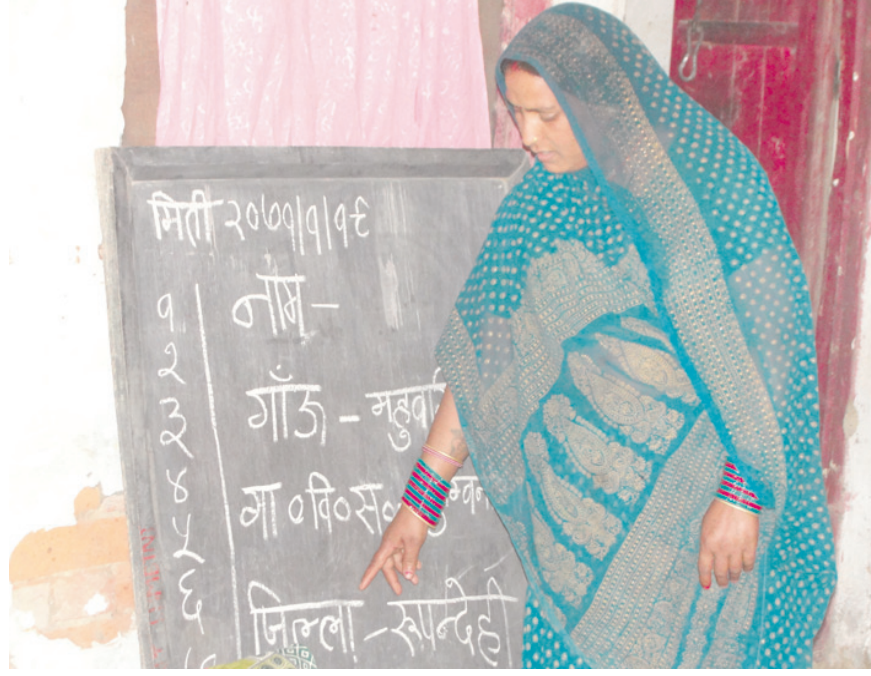 मिती २०७१|१|१६
१
२
३
४
५
६
नाम -
गाँउ -
गा०वि०स०
जिल्ला - रूपन्देही